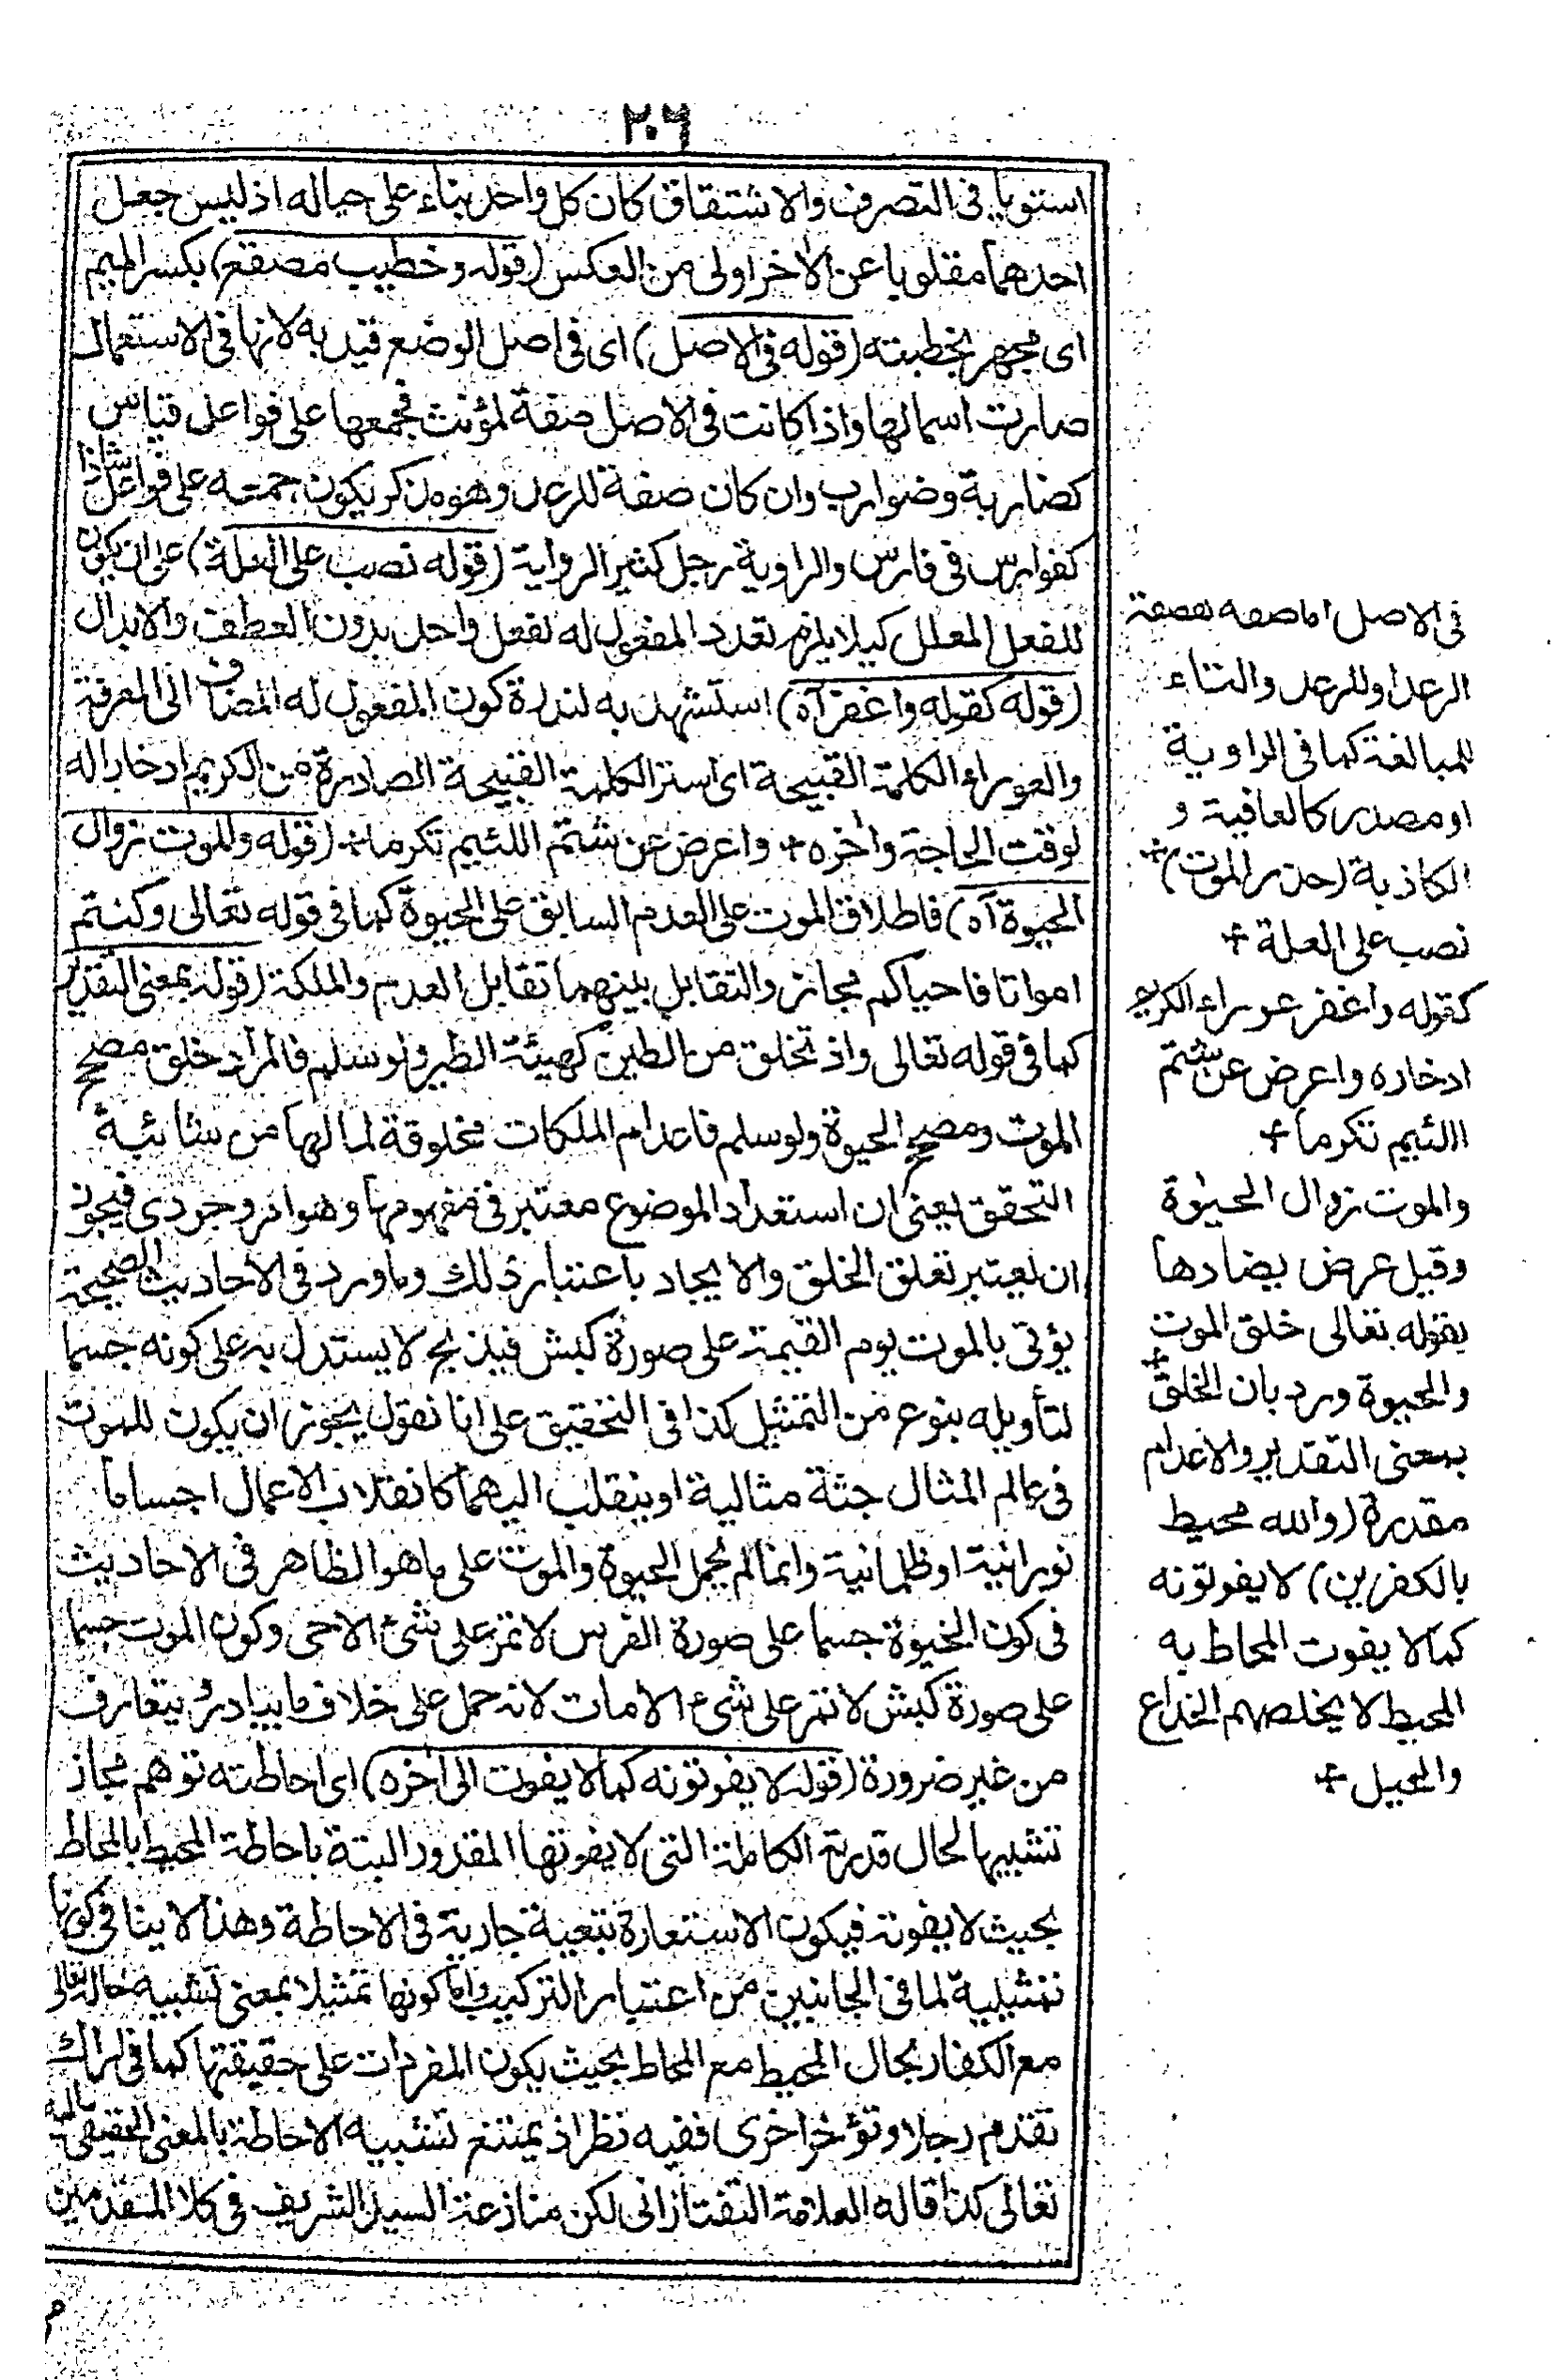 ٢٠٦
استويا فى التصرف والاشتقاق كان كل واحد بناء على حياله اذ ليس جعل
احدهما مقلوبا عن الأخر اولى من العكس (قوله وخطيب مصقع) بكسر الميم
اى مجهر بخطبته (قوله فى الاصل) اى فى اصل الوضع قيد به لانها فى الاستعمال
صارت اسما لها واذا كانت فى الاصل صفة لمؤنث فجمعها على فواعل قياس
كضاربة وضوارب وان كان صفة للرعد وهو مذكر يكون جمعه على فواعل شاذا
كفوارس فى فارس والراوية رجل كثير الرواية (قوله نصب على العلة) على ان يكون
للفعل المعلل كيلا يلزم تعدد المفعول له لفعل واحد بدون العطف والابدال
(قوله كقوله واغفر آه) استشهد به لندرة كون المفعول له المضاف الى المعرفة
والعوراء الكلمة القبيحة اى استر الكلمة القبيحة الصادرة من الكريم ادخارا له
لوقت الحاجة وأخره + واعرض عن شتم اللئيم تكرما + (قوله والموت زوال
الحيوة آه) فاطلاق الموت على العدم السابق على الحيوة كما فى قوله تعالى وكنتم
امواتا فاحياكم مجاز والتقابل بينهما تقابل العدم والملكة (قوله بمعنى التقدير
كما فى قوله تعالى واذ تخلق من الطين كهيئة الطير ولو سلم فالمراد خلق مصحح
الموت ومصحح الحيوة ولو سلم فاعدام الملكات مخلوقة لما لها من شائبة
التحقق يعنى ان استعداد الموضوع معتبر فى مفهومها وهو امر وجودى فيجوز
ان يعتبر تعلق الخلق والايجاد باعتبار ذلك وما ورد فى الاحاديث الصحيحة
يؤتى بالموت يوم القيمة على صورة كبش فيذبح لا يستدل به على كونه جسما
لتأويله بنوع من التمثيل كذا فى التحقيق على انا نقول يجوز ان يكون للموت
فى عالم المثال جثة مثالية او ينقلب اليهما كانقلاب الاعمال اجساما
نورانية او ظلمانية وانما لم يحمل الحيوة والموت على ما هو الظاهر فى الاحاديث
فى كون الحيوة جسما على صورة الفرس لا تمر على شئ الا حى وكون الموت جسما
على صورة كبش لا تمر على شئ الا مات لانه حمل على خلاف ما يتبادر ويتعارف
من غير ضرورة (قوله لا يفوتونه كما لا يفوت الى اخره) اى احاطته توهم مجاز
تشبيها لحال قدرته الكاملة التى لا يفوتها المقدور البتة باحاطة المحيط بالمحاط
بحيث لا يفوته فيكون الاستعارة تبعية جارية فى الاحاطة وهذا لا ينافى كونها
تمثيلية لما فى الجانبين من اعتبار التركيب واما كونها تمثيلا بمعنى تشبيه حاله تعالى
مع الكفار بحال المحيط مع المحاط بحيث يكون المفردات على حقيقتها كما فى اراك
تقدم رجلا وتؤخر اخرى ففيه نظر اذ يمتنع تشبيه الاحاطة بالمعنى الحقيقى اليه
تعالى كذا قاله العلامة التفتازانى لكن منازعة السيد الشريف فى كلا المقدمتين
فى الاصل اما صفة لقصفة
الرعد او للرعد والتاء
للمبالغة كما فى الراوية
او مصدر كالعافية و
الكاذبة (حذر الموت) +
نصب على العلة +
كقوله واغفر عوراء الكريم
ادخاره واعرض عن شتم
اللئيم تكرما +
والموت زوال الحيوة
وقيل عرض يضادها
بقوله تعالى خلق الموت
والحيوة ورد بان الخلق +
بمعنى التقدير والاعدام
مقدرة (والله محيط
بالكفرين) لا يفوتونه
كما لا يفوت المحاط به
المحيط لا يخلصهم الخداع
والحيل +
م